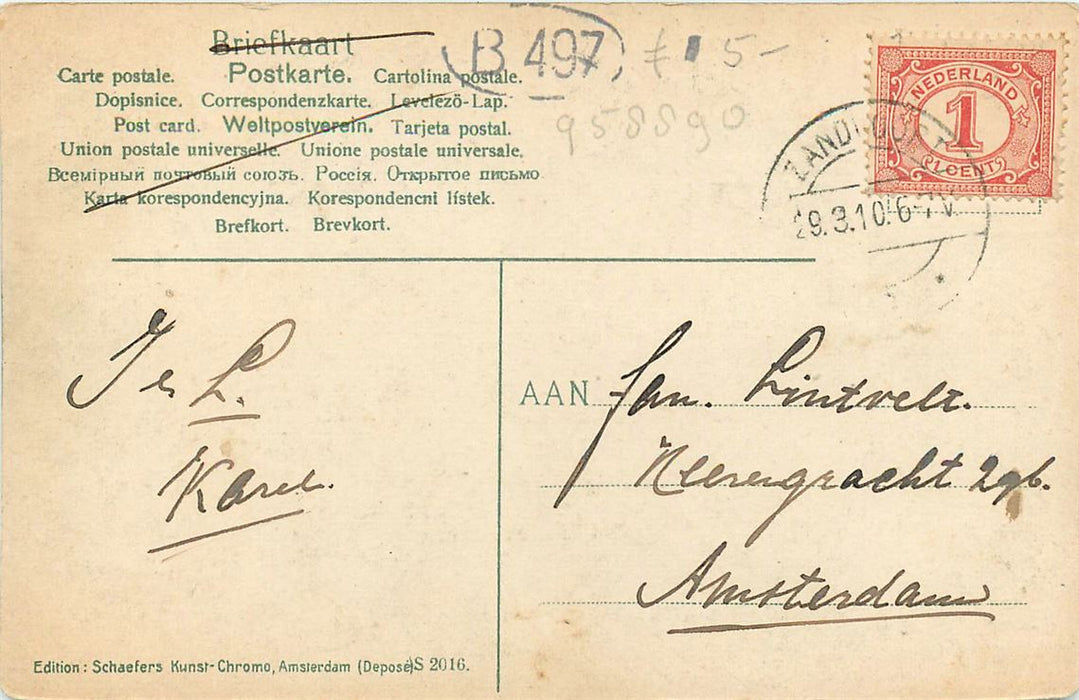 Briefkaart
Carte postale. Postkarte. Cartolina postale.
Dopisnice. Correspondenzkarte. Levelezö-Lap.
Post card. Weltpostverein. Tarjeta postal.
Union postale universelle. Unione postale universale.
Всемірный почтовый союзъ. Россія. Открытое письмо
Karta korespondencyjna. Korespondencni lístek.
Brefkort. Brevkort.
B 497
5-
958890
NEDERLAND
1
1 CENT
ZANDVOORT
29.3.10 6-7V
L.
Karel.
AAN Jan. Lintvelt.
Heerengracht 296.
Amsterdam
Edition: Schaefers Kunst-Chromo, Amsterdam (Deposé) S 2016.